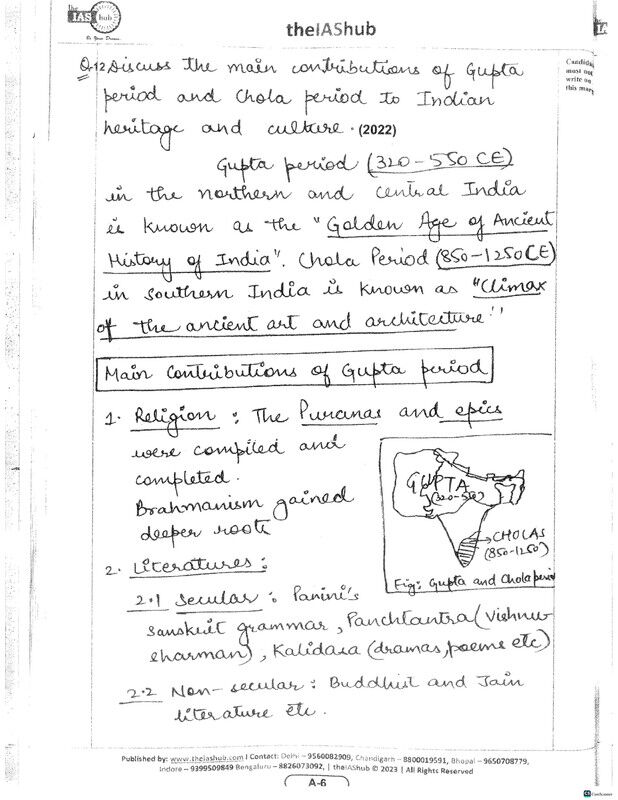 the
IAS hub
Be Your Dream..
theIAShub
Candida
must not
write on
this marg
Q.12 Discuss the main contributions of Gupta
period and Chola period to Indian
heritage and culture. (2022)
Gupta period (320-550 CE)
in the northern and central India
is known as the "Golden Age of Ancient
History of India". Chola Period (850-1250CE)
in southern India is known as "Climax
of the ancient art and architecture"
Main Contributions of Gupta period
1. Religion : The Puranas and epics
were compiled and
completed.
Brahmanism gained
deeper roots
GUPTA
(320-550)
CHOLAS
(850-1250)
Fig: Gupta and Chola period
2. Literatures :
2.1 Secular : Panini's
sanskrit grammar, Panchtantra (Vishnu
sharman), Kalidasa (dramas, poems etc)
2.2 Non-secular : Buddhist and Jain
literature etc.
Published by: www.theiashub.com I Contact: Delhi - 9560082909, Chandigarh - 8800019591, Bhopal - 9650708779,
Indore - 9399509849 Bengaluru - 8826073092, | theIAShub © 2023 | All Rights Reserved
A-6
CS CamScanner